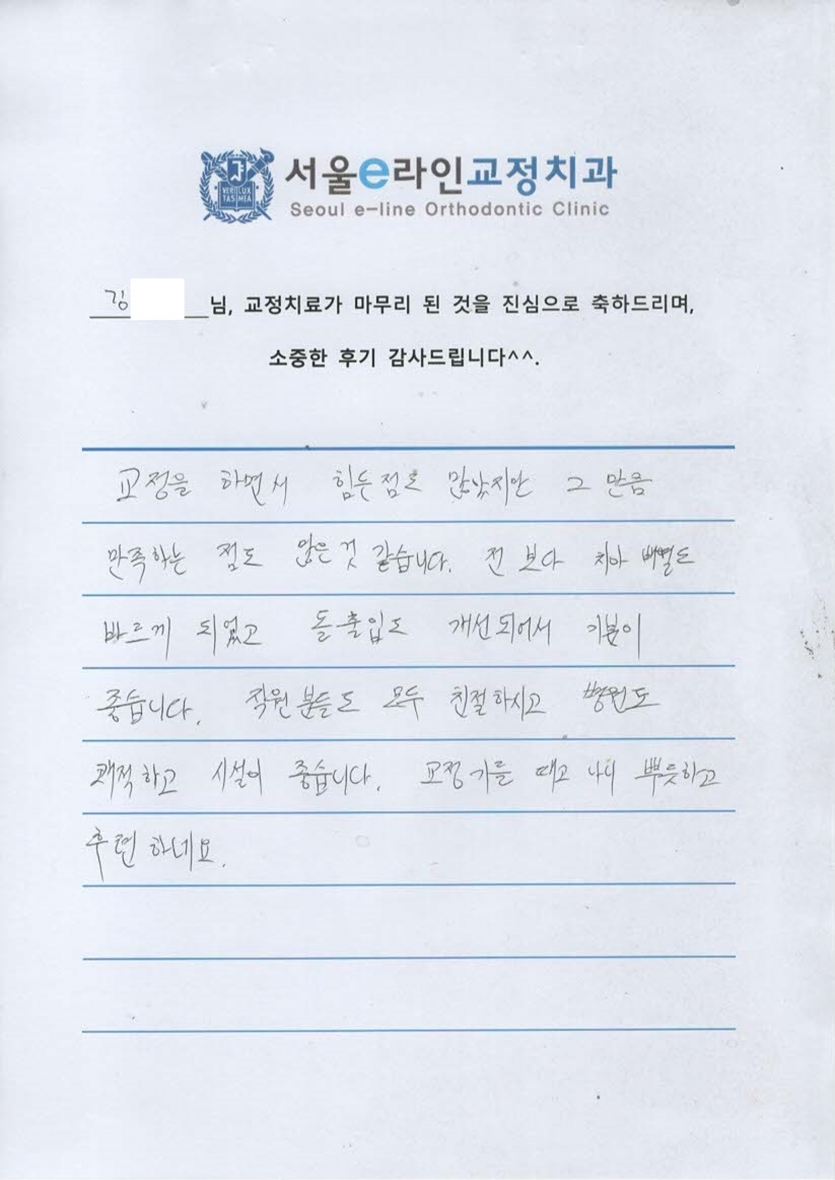 서울e라인교정치과
VERI LUX
TAS MEA
Seoul e-line Orthodontic Clinic
김 님, 교정치료가 마무리 된 것을 진심으로 축하드리며,
소중한 후기 감사드립니다^^.
교정을 하면서 힘든점도 많았지만 그 만큼
만족하는 점도 많은것 같습니다. 전 보다 치아 배열도
바르게 되었고 돌출입도 개선되어서 기분이
좋습니다. 직원분들도 모두 친절하시고 병원도
쾌적하고 시설이 좋습니다. 교정기를 떼고 나니 뿌듯하고
후련하네요.